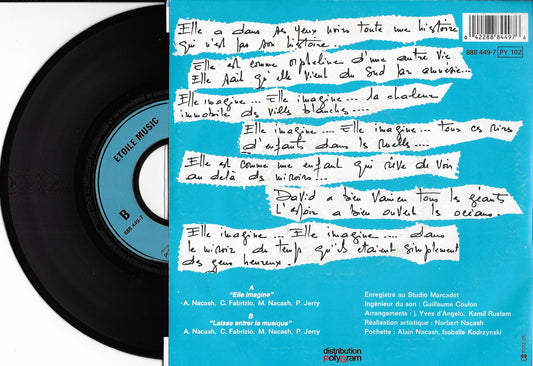 Elle a dans ses yeux noirs toute une histoire
qui n'est pas son histoire...
Elle est comme orpheline d'une autre vie
Elle sait qu'elle vient du Sud par amnésie...
Elle imagine... Elle imagine... la chaleur
immobile des villes blanches....
Elle imagine.... Elle imagine... tous ces rires
d'enfants dans les ruelles....
Elle est comme une enfant qui rêve de voir
au delà des miroirs...
David a bien vaincu tous les géants
L'espoir a bien ouvert les océans
Elle imagine... Elle imagine.... dans
le miroir du temps qu'ils étaient simplement
des gens heureux.
0 42288 84497 6
888 449-7 PY 102
ETOILE MUSIC
B
888 449-7
A
"Elle imagine"
A. Nacash, C. Fabrizio, M. Nacash, P. Jerry
B
"Laisse entrer la musique"
A. Nacash, C. Fabrizio, M. Nacash, P. Jerry
Enregistré au Studio Marcadet
Ingénieur du son : Guillaume Coulon
Arrangements : j. Yves d'Angelo, Kamil Rustam
Réalisation artistique : Norbert Nacash
Pochette : Alain Nacash, Isabelle Kodrzynski
distribution
polygram